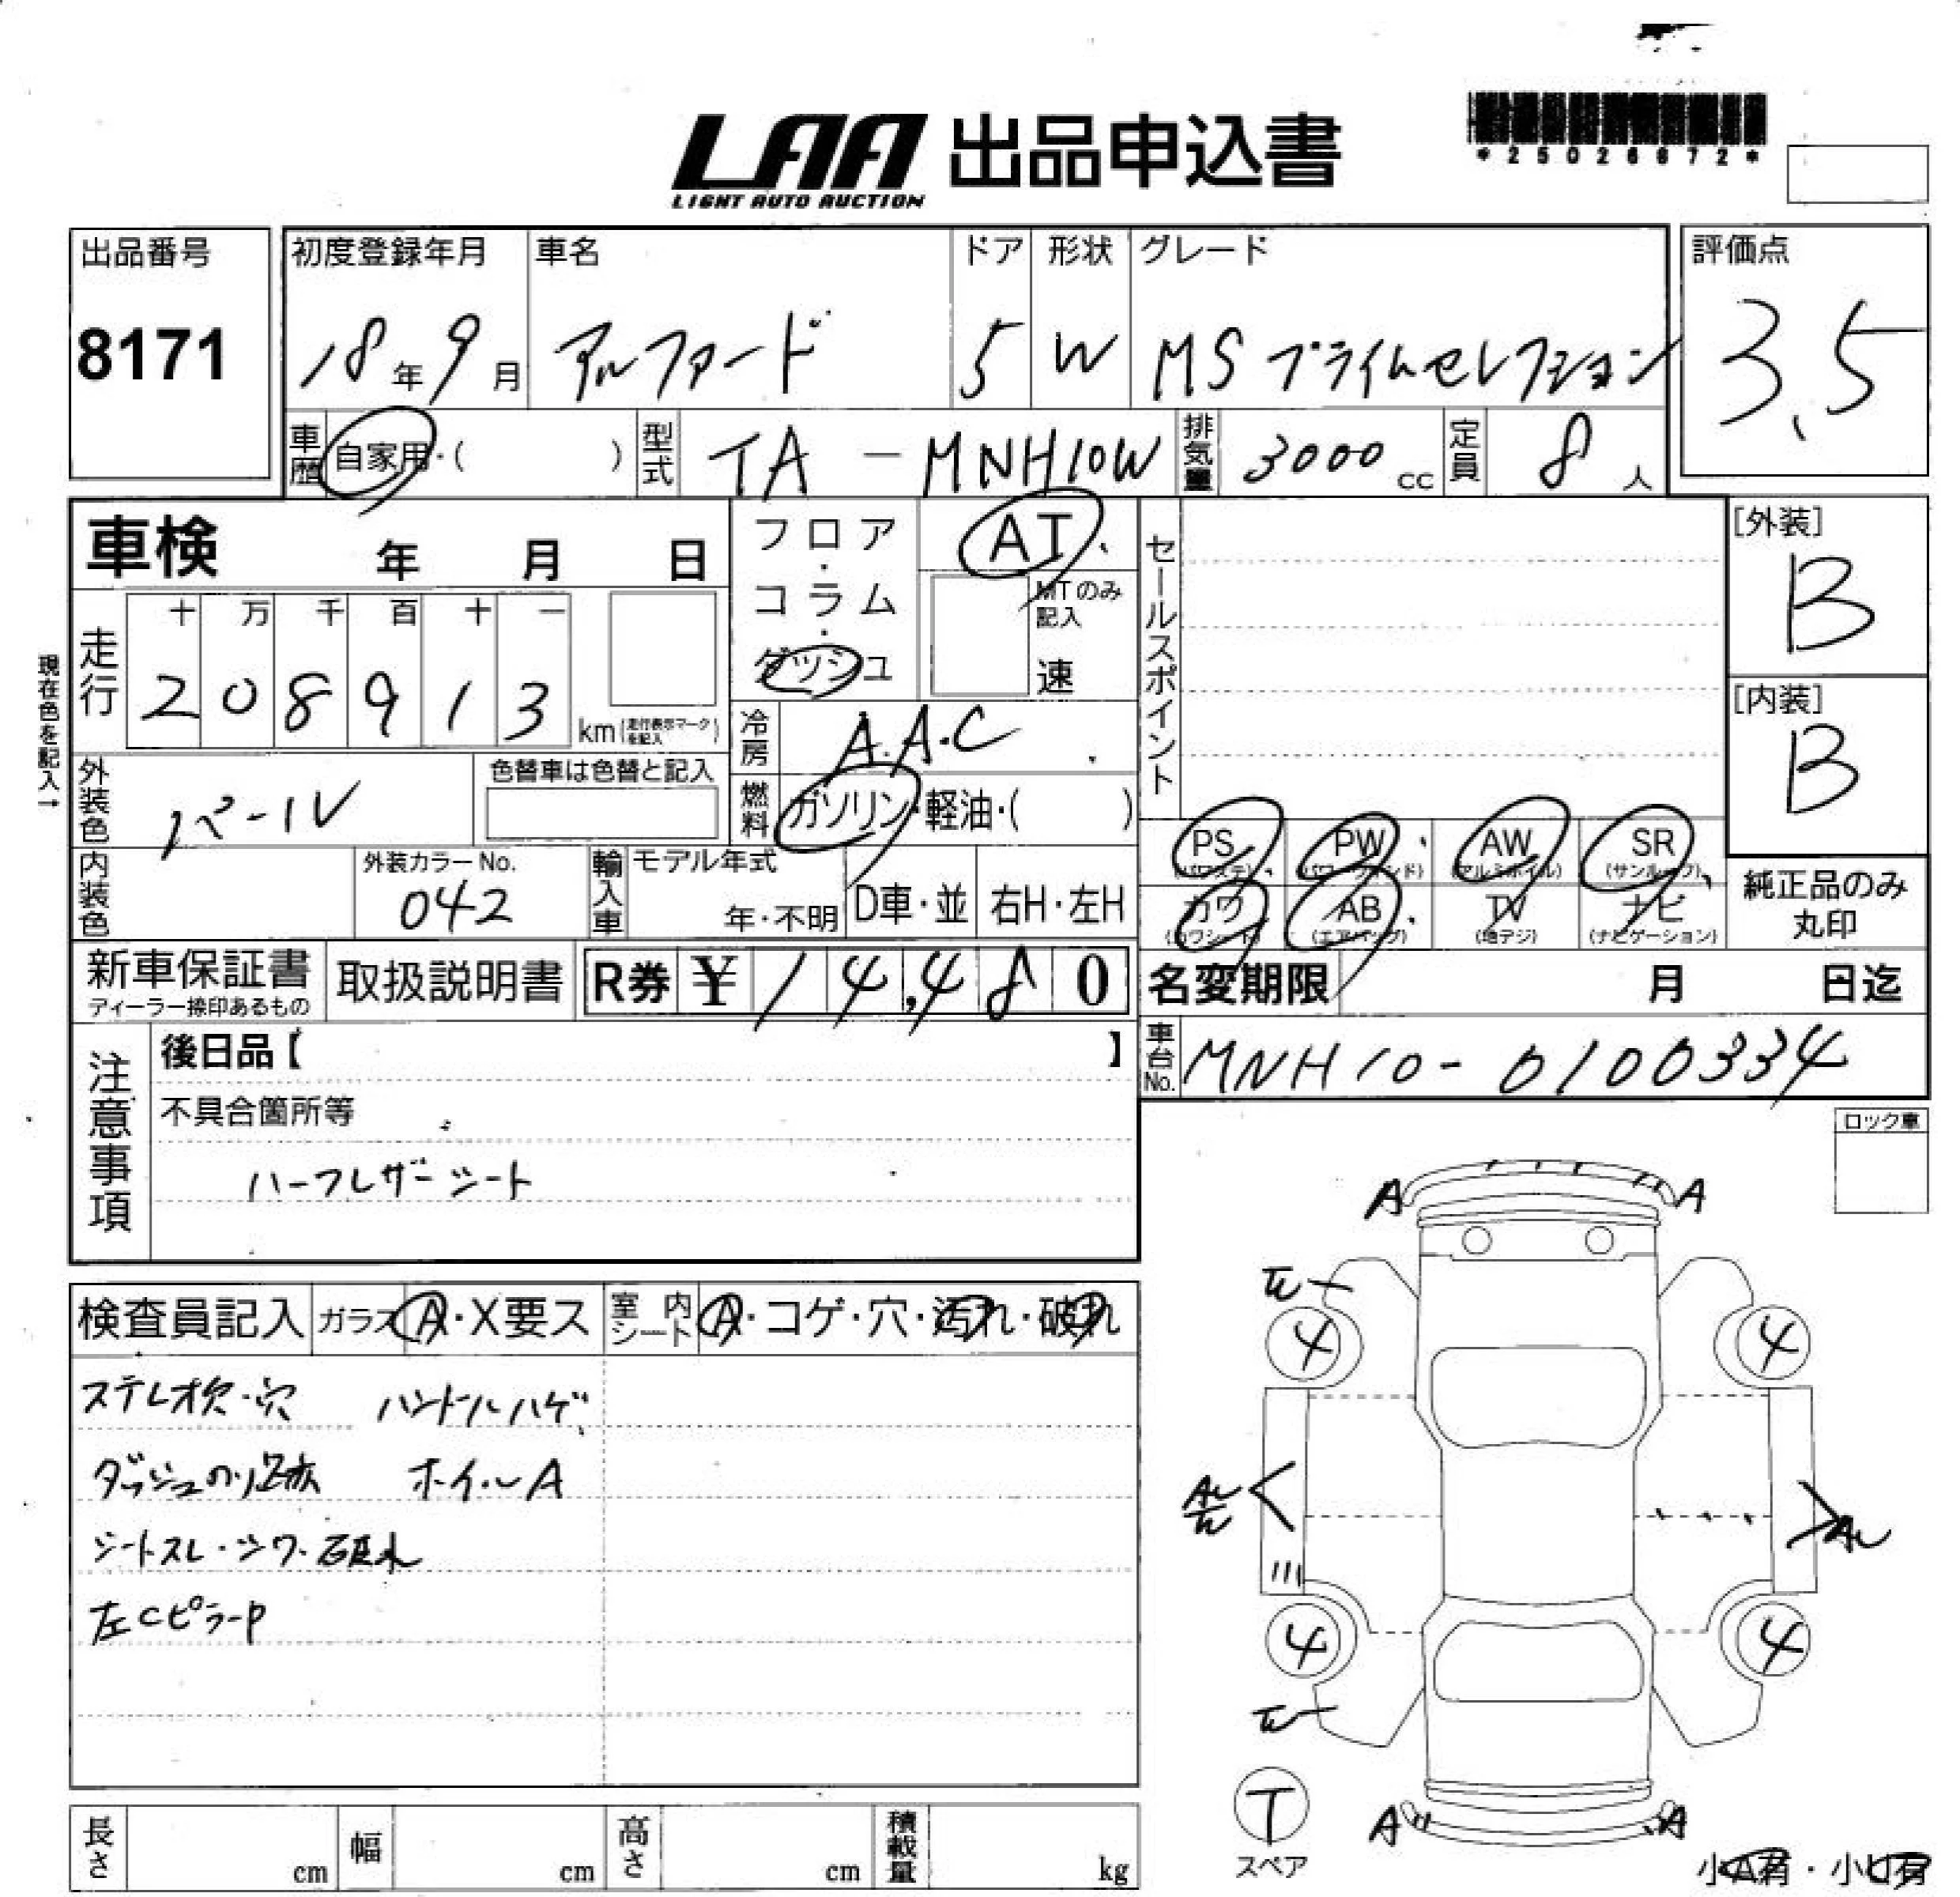 LAA 出品申込書
LIGHT AUTO AUCTION
*25026672*
出品番号 8171
初度登録年月 18年 9月
車名 アルファード
ドア 5
形状 W
グレード MS プライムセレクション
評価点 3.5
車歴 自家用・( )
型式 TA-MNH10W
排気量 3000 cc
定員 8人
車検 年 月 日
フロア・コラム・ダッシュ
AT
MTのみ記入 速
セールスポイント
[外装] B
[内装] B
現在色を記入→
走行
十 万 千 百 十 一
2 0 8 9 1 3 km (走行表示マークを記入)
冷房 A.A.C
燃料 ガソリン・軽油・( )
外装色 パール
色替車は色替と記入
内装色
外装カラーNo. 042
輸入車 モデル年式 年・不明
D車・並 右H・左H
PS (パワステ)
PW (パワーウィンド)
AW (アルミホイル)
SR (サンルーフ)
カワ (カワシート)
AB (エアバッグ)
TV (地デジ)
ナビ (ナビゲーション)
純正品のみ丸印
新車保証書
ディーラー捺印あるもの
取扱説明書
R券 ¥ 14,480
名変期限 月 日迄
車台No. MNH10-0100334
注意事項
後日品【 】
不具合箇所等
ハーフレザーシート
ロック車
検査員記入 ガラス A・X要ス 室内シート A・コゲ・穴・汚れ・破れ
ステレオ欠・穴 ハンドルハゲ
ダッシュのり跡 ホイールA
シートスレ・シワ・破れ
左CピラーP
A A
4 4
4 4
A A
T
スペア
小A有・小U有
長さ cm 幅 cm 高さ cm 積載量 kg